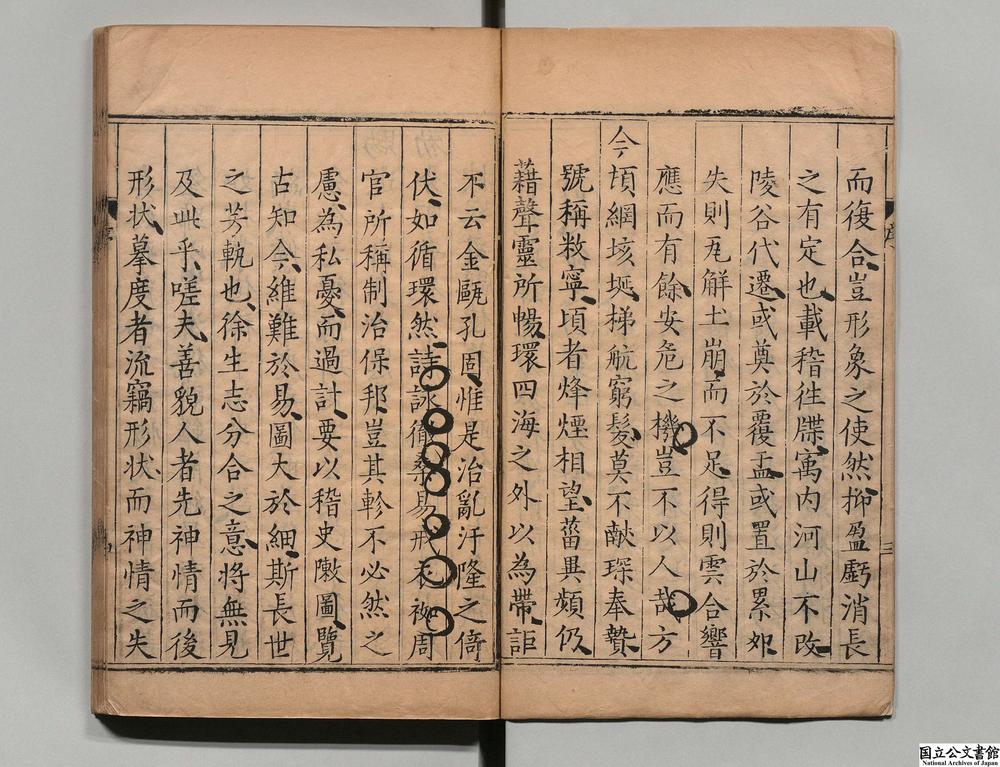 而復合豈形象之使然抑盈虧消長
之有定也載稽徃牒㝢内河山不改
陵谷代遷或奠於覆盂或置於累卵
失則瓦解土崩而不足得則雲合響
應而有餘安危之機豈不以人哉方
今頃綱垓埏梯航窮髮莫不献琛奉贄
號稱敉寧頃者烽煙相望菑異頻仍
藉聲靈所暢環四海之外以為帶詎
不云金甌孔固惟是治亂汙隆之倚
伏如循環然詩詠徹桑易戒衣袽周
官所稱制治保邦豈其軫不必然之
慮為私憂而過計要以稽史㪣圖覽
古知今維難於易圖大於細斯長世
之芳軌也徐生志分合之意將無見
及此乎嗟夫善貌人者先神情而後
形状摹度者流竊形状而神情之失
序
三
序
国立公文書館
National Archives of Japan